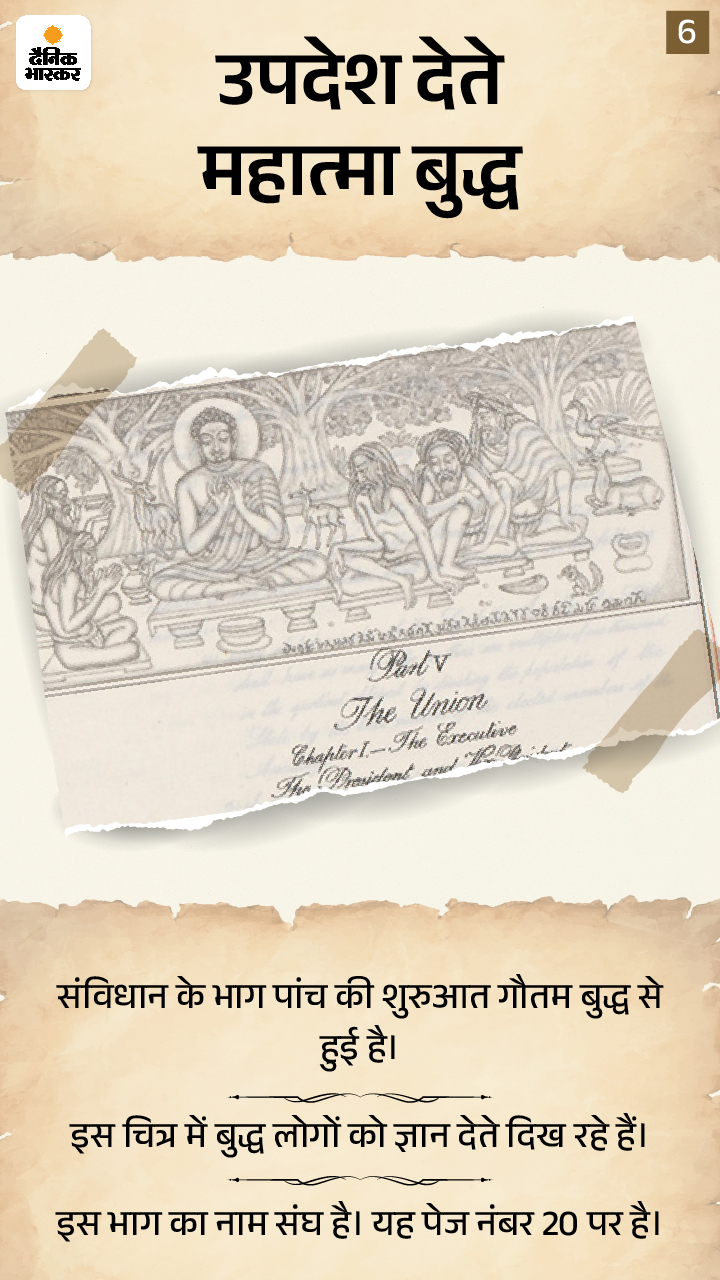 दैनिक
भास्कर
6
उपदेश देते
महात्मा बुद्ध
Part V
The Union
Chapter I.— The Executive
The President and
संविधान के भाग पांच की शुरुआत गौतम बुद्ध से
हुई है।
इस चित्र में बुद्ध लोगों को ज्ञान देते दिख रहे हैं।
इस भाग का नाम संघ है। यह पेज नंबर 20 पर है।